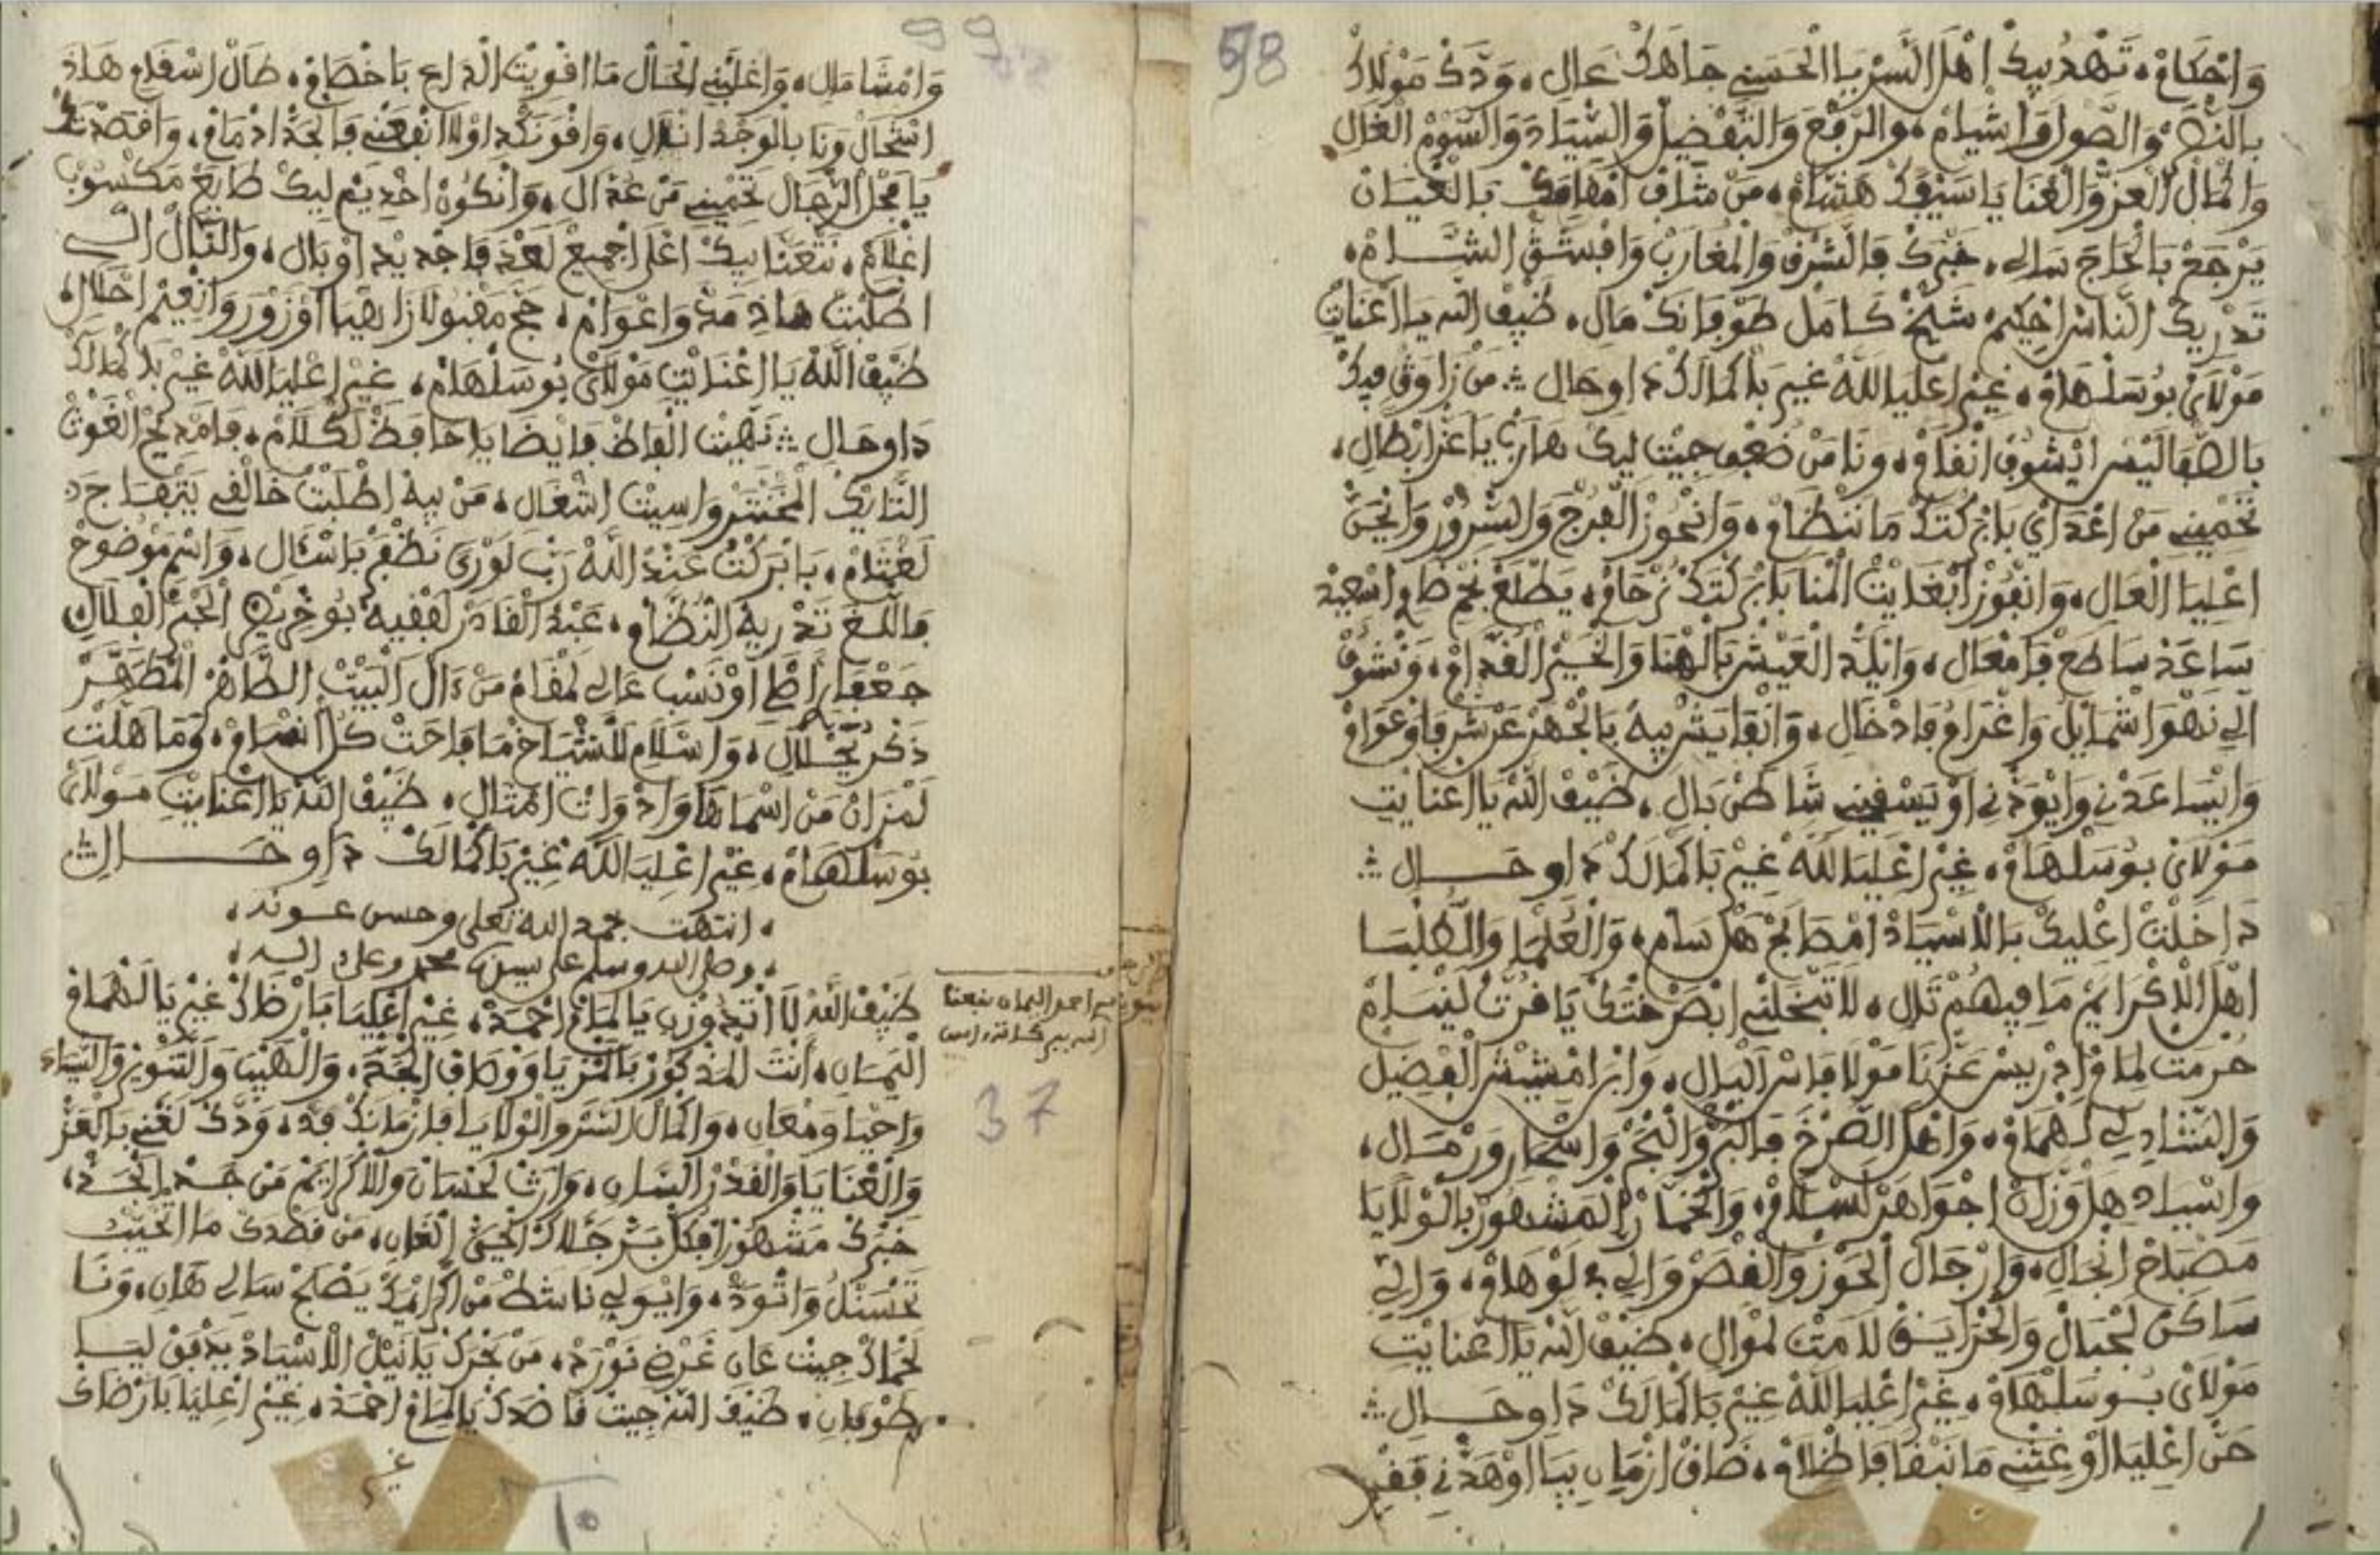 98
وَاحْكَامْ، تَهْدِ بِيكْ اهْلَ السّرْ يَا الْحَسَنِي جَاهَكْ عَالِ، وَدّكْ مَوْلَاكْ
بالنّصرْ وَالصّولْ وَاشْيَامْ، والرّفْعْ وَالتّفْضِيلْ وَالسّيَادَ وَالسّوْمْ الْغَالِ
وَالْمَالْ الْعِزّ وَالْغْنَا يَا سَيْفْ هَشّامْ، مَنْ شَافْ امْقَامَكْ بَالْعْيَانْ
يَرْجَعْ بَالْحَاجَ سَالِي، خَبْرَكْ فَالشّرْقْ وَالْمْغَارَبْ وَاقْبَسْتَقّ الشّـام،
تَدْرِيكْ النّاسْ احْكِيمْ شَيْخْ كَامَلْ طَوْفَانَكْ مَالِ، ضَيْفْ اللّه يَا اعْنَايْتِ
مَوْلَايْ بُوسَلْهَامْ، غِيرْ اعْلِيَا اللّهْ غِيرْ يَا كْمَالَكْ دَاوِ حَالِ ∴ مَنْ زَاوَقْ فِيكْ
بَالصّفَا لِيسْ ايْشُوفْ انْقَامْ، وَنَا مَنْ ضُعْفِ جِيتْ لِيكْ هَارَبْ يَا عَزْ ابْطَالِ،
تَحْمِينِي مَنْ اعْدَايْ بَابْرَكْتَكْ مَا نَنْضَامْ، وَانْحُوزْ الْفْرَجْ وَالسّرُورْ وَانْجَنّ
اعْلِيَا الْعَالِ، وَانْفُوزْ ابْغَايْتْ الْمْنَا بَابْرَكْتَكْ نَرْحَامْ، يَطْلَعْ نَجْمْ طَوْ اسْعِيدْ
سَاعَدْ سَاطَعْ فَامْعَالِ، وَانْلِيدْ الْعَيْشْ بَالْهْنَا وَالْخَيْرْ الْقَدّامْ، وَنْشُوفْ
الّي نَهْوَا اشْمَايْلُ وَاغْرَامُ فَادْخَالِ، وَانْقَايَسْ بِيهْ بَالْجْهَرْ عَرْشْ فَاوْعْوَامْ
وَايْسَاعَدْنِي وَايْوَدّنِي اوْ يَسْقِينِي شَاطَنْ بَالِ، ضَيْفْ اللّه يَا اعْنَايْتِ
مَوْلَايْ بُوسَلْهَامْ، غِيرْ اعْلِيَا اللّهْ غِيرْ يَا كْمَالَكْ دَاوِ حَـالِ ∴
دَاخَلْتْ اعْلِيكْ بَالَاسْيَادْ امْصَابَحْ هَلْ سَامْ، وَالْعُلْمَا وَالطّلْبَا
اهْلْ الذّكْرْ ايَمْ مَا فِيهُمْ تَالِ، لَا تَبْخَلْنِي ابْصَرْخْتَكْ يَا قُرّتْ لَنْيَامْ
حُرْمَتْ لِمَامْ ادْرِيسْ عَزّنَا مَوْلَا فَاسْ الْبَالِ، وَابْن امْشِيشْ الْفْضِيلْ
وَالشّاذِلِي لَهْمَامْ، وَاهْلَ الصّرْخَ فَالْبَرّ وَالْبْحَرْ وَاسْحَارِ وَرْمَالِ،
وَاسْيَادِ هَلْ وَزّانْ اجْوَاهَرْ لَسْلَامْ، وَالْخَمّارْ الْمَشْهُورْ بَالْوْلَايَا
مَصْبَاحْ انْجَالِ، وَارْجَالْ الْحَوْزْ وَالْقْصَرْ وَالِي لَوْهَامْ، وَالِي
سَاكَنْ لَجْبَالْ وَالْخْزَايَنْ لَامَتْ لَمْوَالِ، ضَيْفْ اللّه يَا اعْنَايْتِ
مَوْلَايْ بُوسَلْهَامْ، غِيرْ اعْلِيَا اللّهْ غِيرْ يَا كْمَالَكْ دَاوِ حَـالِ ∴
حَنّ اعْلِيَا اوْ غِثْنِي مَا نَبْقَا فَاظْلَامْ، ضَاقْ ازْمَانِ بِيَا اوْهَدّنِي فَقْرِ
99
وَامْشَا مَالِ، وَاغْلَبْنِي الْحَالْ مَا اقْوِيتْ الْدْرَاعِ بَاخْصَامْ، طَالْ اسْقَامِ هَاذَ
اشْحَالْ وَنَا بَالْوَجْدْ انْلَالِ، وَاقْوَ نَكْدِ اوْلَا انْفَعْنِي فَالْجَدْ ادْمَامْ، وَاقْصَدْتَكْ
يَا فَحْلْ الرّجَالْ تَحْمِينِي مَنْ عَدّالِ، وَانْكُونْ اخْدِيمْ لِيكْ طَايَعْ مَكْسُوبْ
اغْلَامْ، نَتْعَنَّا بِيكْ اعْلَ اجْمِيعْ لَعْدَ فَاجْدِيدْ اوْبَالِ، وَانّالْ الّي
اطْلَبْتْ هَاذِ مَدّ وَاعْوَامْ، حَجّ مَقْبُولْ زَاهْيَا اوْزُورَ وَانْعِيمْ احْلَالِ،
ضَيْفْ اللّهْ يَا اعْنَايْتِ مَوْلَايْ بُوسَلْهَامْ، غِيرْ اعْلِيَا اللّهْ غِيرْ يَا كْمَالَكْ
دَاوِ حَـالِ ∴ نَهِّيتْ الْفَاظْ فَايْضَا يَا حَافَظْ لَكْلَامْ، فَامْدِيحْ الْغَوْثْ
التّارِيكْ الْمُخَنْتَرْ وَاسِيتْ اشْغَالِ، مَنْ بِيهْ اطْلَبْتْ خَالْقِي يَتْفَاجَ
لَغْيَامْ، بَابْرَكْتُ عَنْدْ اللّهْ رَبّ لَوْرَى نَظْفَرْ بَاسْآلِ، وَاسْمِ مَوْضُوحْ
فَاللّغَ تَدْرِيهْ النّظّامْ، عَبْدْ الْقَادَرْ لَفْقِيهْ بُوخْرِيصْ الْجَمْ الْقْلَالِ
جَعْفَارْ اظَا اوْنَسْبِ عَالِي لَمْقَامْ مَنْ دَالْ الْبَيْتْ الطّاهَرْ الْمْطَهّرْ
ذَكْرُ يَحْلَالِ، وَاسْلَامِ لَلشّيَاخْ مَا فَاحَتْ كُلّ انْسَامْ، وَمَا هَلْتْ
لَمْزَانْ مَنْ اسْمَاهَا وَادْوَاتْ امْثَالِ، ضَيْفْ اللّه يَا اعْنَايْتِ مَوْلَايْ
بُوسَلْهَامْ، غِيرْ اعْلِيَا اللّهْ غِيرْ يَا كْمَالَكْ دَاوِ حَـــالِ ∴
، انتهت بحمد الله تعلى وحسن عـونه،
، وصلى الله وسلم على سيدنا محمد وعلى آله،
ضَيْفْ اللّهْ لَا اتْجُوزْنِي يَا لِمَامْ احْمَدْ، غِيرْ اعْلِيَا بَارْضَاكْ غِيرْ يَا لَهْمَامْ
الْيَمَانِ، انْتَ الْمَذْكُورْ بَالْمْزِيَا وَوْصَافْ الْجَدّ، وَالْهَيْبَ وَالسّوَنِيزْ وَالسّيَادَ
وَاحْيَا وَمْعَانِ، وَاكْمَالْ السّرّ وَالْوْلَايَا فَازْمَانَكْ فَدّ، وَدّكْ لَغْنِي بَالْعَزّ
وَالْعْنَايَا وَالْقَدْرْ السّانِ، وَارَثْ لَحْسَانْ وَالَاكْرَايَمْ مَنْ جَدّ الْجَدّ،
خَبْرَكْ مَشْهُورْ افْكُلْ بَرّ جَلَّاكْ الْحَيّ الْغَانِ، مَنْ قَصْدَكْ مَا الْخَيْبْ
تَحْسَنْلُ وَاتْوَدّ، وَايْوَلِّي نَاشَطْ مَنْ اكْرَامَكْ يَصْبَحْ سَالِي هَانِ، وَنَا
لَحْمَاكْ جِيتْ عَانِ غَرْضِي نَوْرَدْ، مَنْ بَحْرَكْ يَا نَيْلْ الَاسْيَادْ يَدْفَقْ لِيَا
طَوْفَانِ، ضَيْفْ اللّهْ جِيتْ قَاصْدَكْ يَا لِمَامْ احْمَدْ، غِيرْ اعْلِيَا بَارْضَاكْ
غير
37